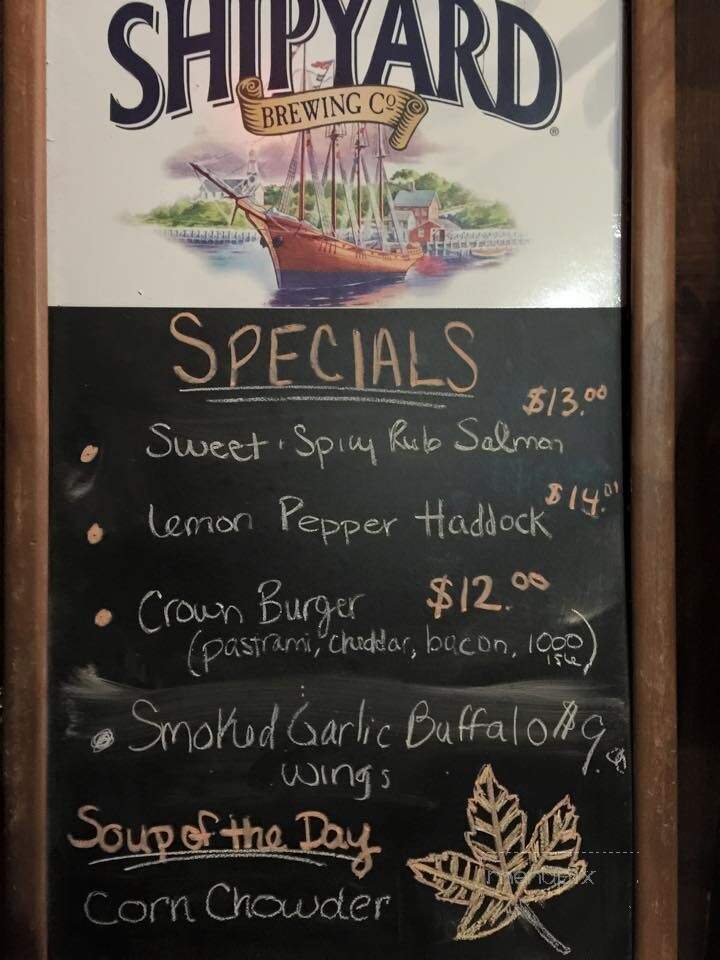 SHIPYARD
BREWING CO
®
SPECIALS
$13.00
Sweet · Spicy Rub Salmon
$14.00
Lemon Pepper Haddock
Crown Burger $12.00
(pastrami, cheddar, bacon, 1000
isle)
Smoked Garlic Buffalo $9.
wings
Soup of the Day
Corn Chowder
menupix